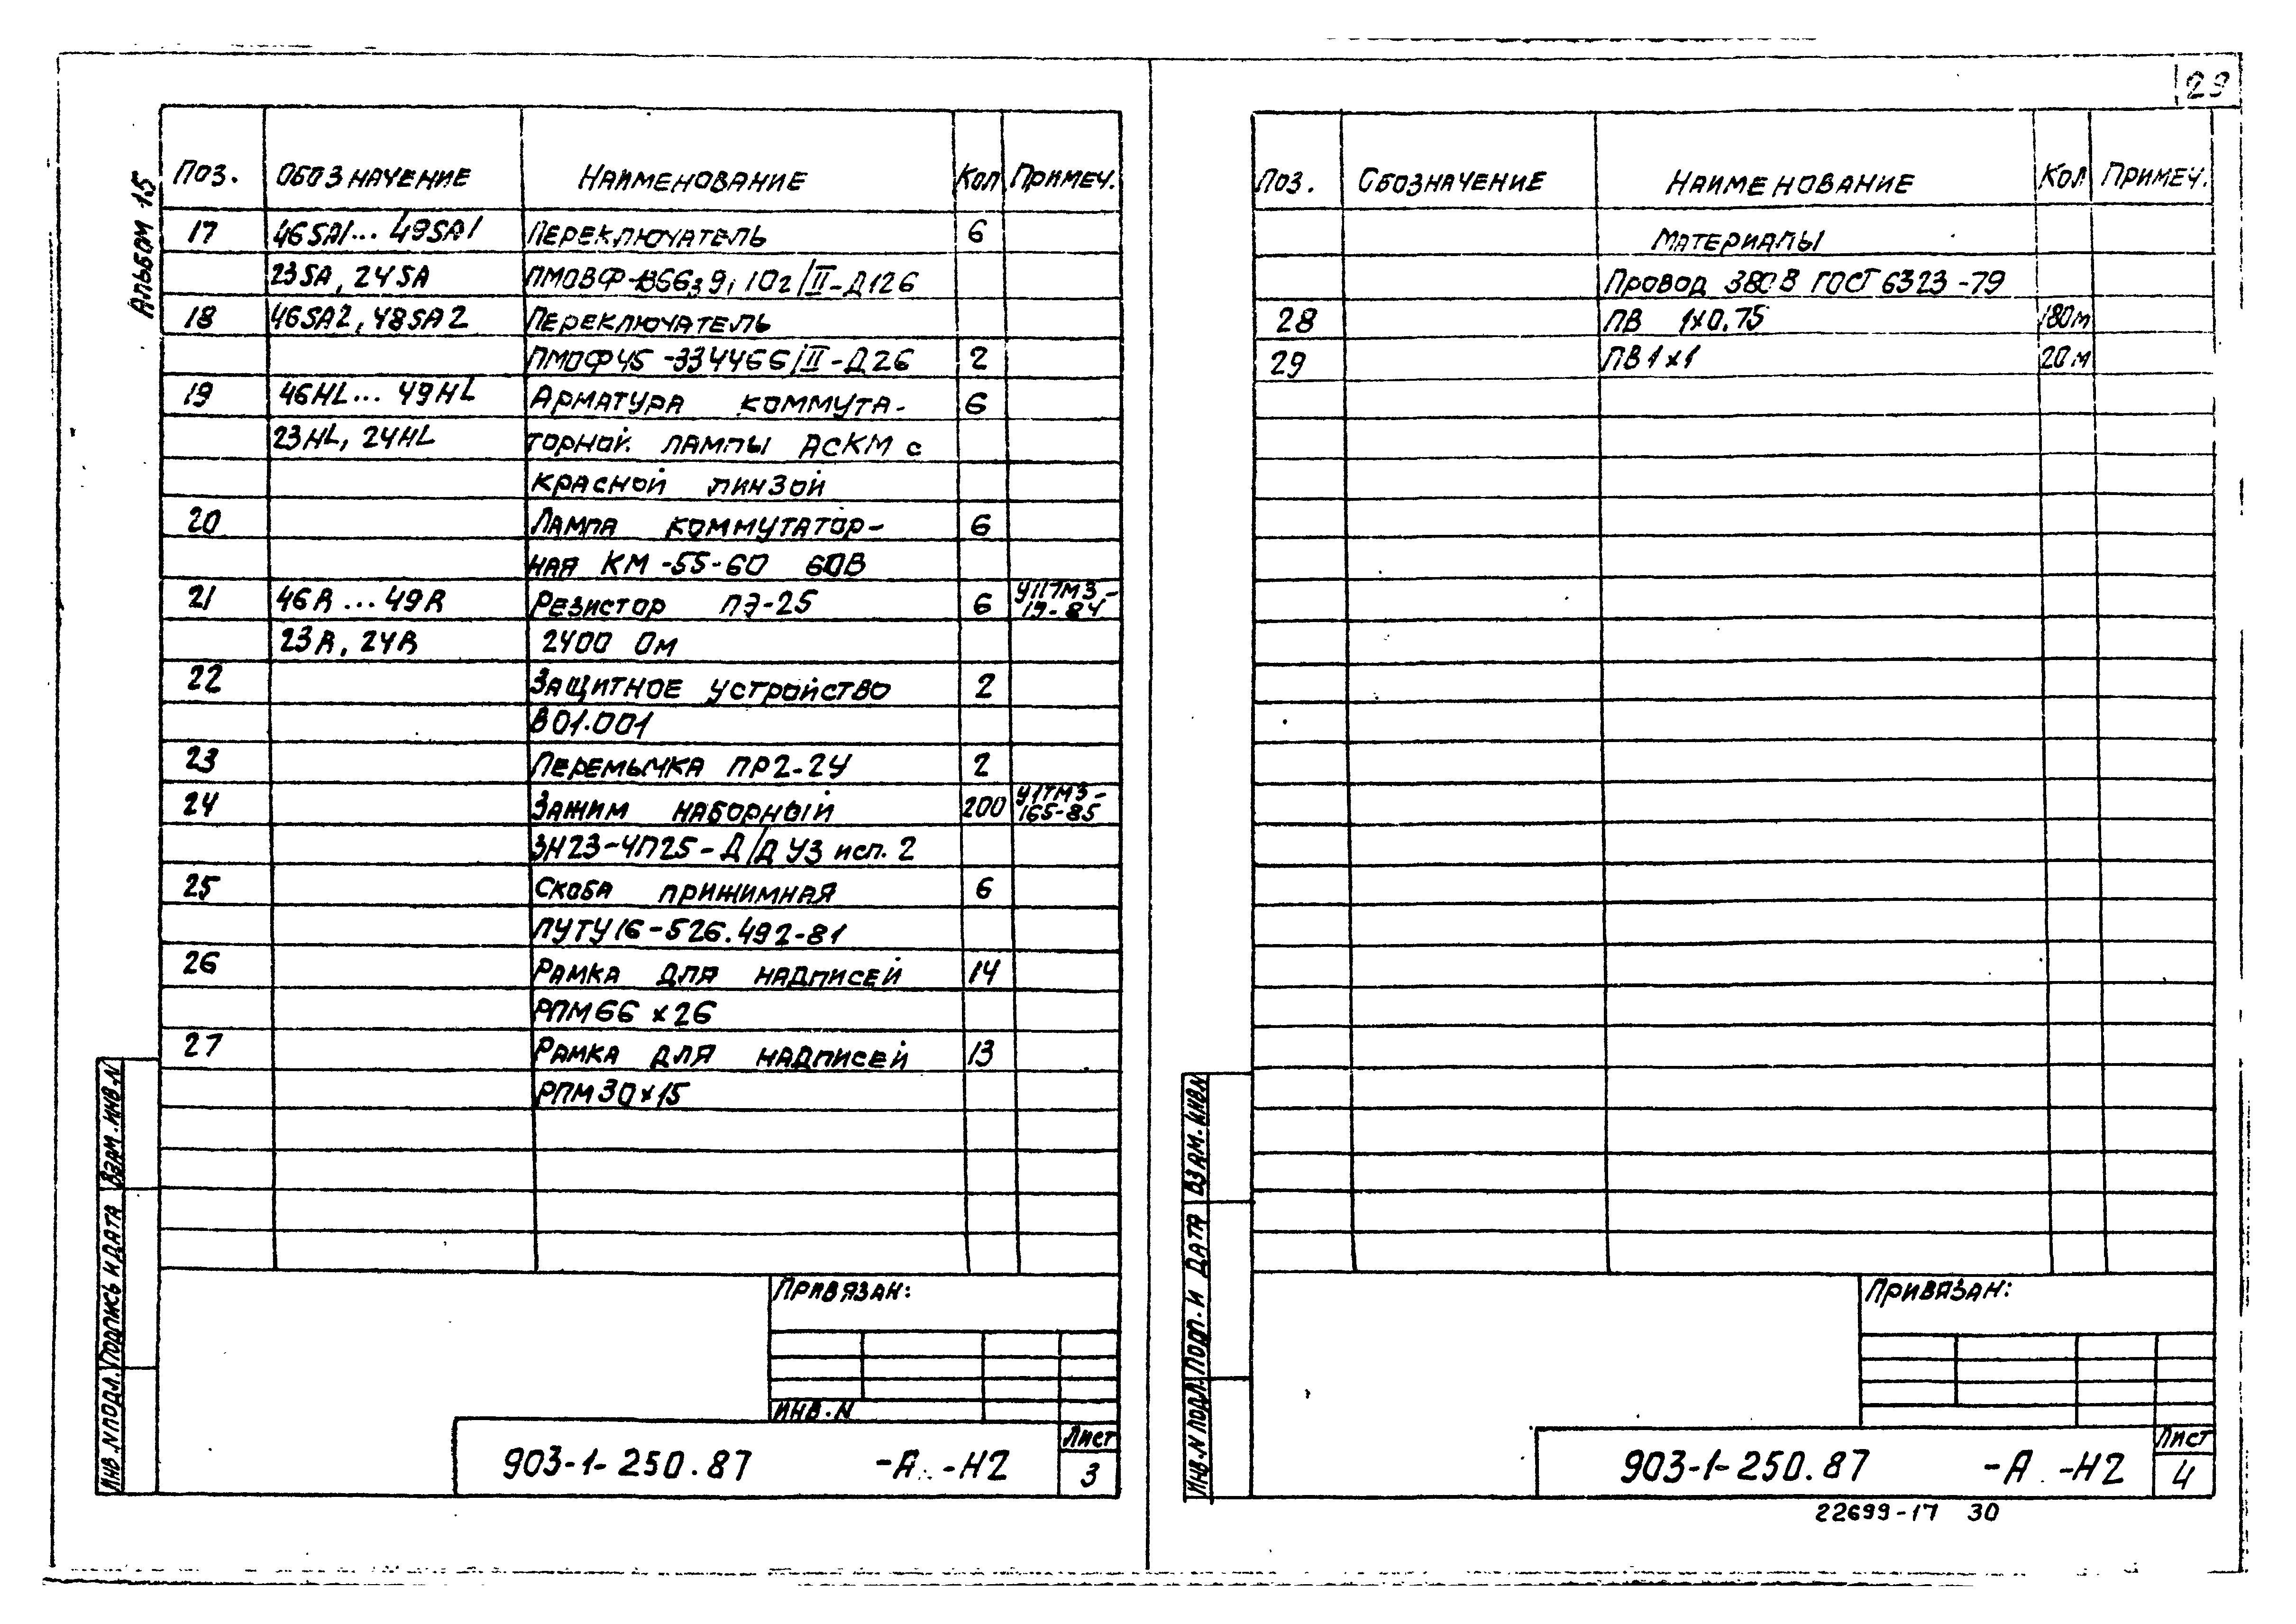 29
Альбом 15
Поз. Обозначение Наименование Кол Примеч.
17 46SA1... 49SA1 Переключатель 6
23SA, 24SA
18 46SA2, 48SA2 Переключатель
ПМОФ45-334466/II-Д26 2
19 46HL... 49HL Арматура коммута- 6
23HL, 24HL торной лампы АСКМ с
красной линзой
20 Лампа коммутатор- 6
ная КМ-55-60 60В
21 46R...49R Резистор ПЭ-25 6 УПТМЗ-
19-84
23R, 24R 2400 Ом
22 Защитное устройство 2
В01.001
23 Перемычка ПР2-2У 2
24 Зажим наборный 200 УПТМЗ-
165-85
ЗН23-4П25-Д/Д У3 исп. 2
25 Скоба прижимная 6
ПУТУ16-526.492-81
26 Рамка для надписей 14
РПМ66х26
27 Рамка для надписей 13
РПМ30х15
Привязан:
ИНВ.N
903-1-250.87 -А -Н2
Лист
3
ИНВ.N ПОДЛ. ПОДПИСЬ И ДАТА ВЗАМ.ИНВ.N
Поз. Обозначение Наименование Кол Примеч.
Материалы
Провод 380В ГОСТ 6323-79
28 ПВ 1х0.75 180м
29 ПВ1х1 20м
Привязан:
903-1-250.87 -А -Н2
Лист
4
ИНВ.N ПОДЛ. ПОДП. И ДАТА ВЗАМ.ИНВ.N
22699-17 30